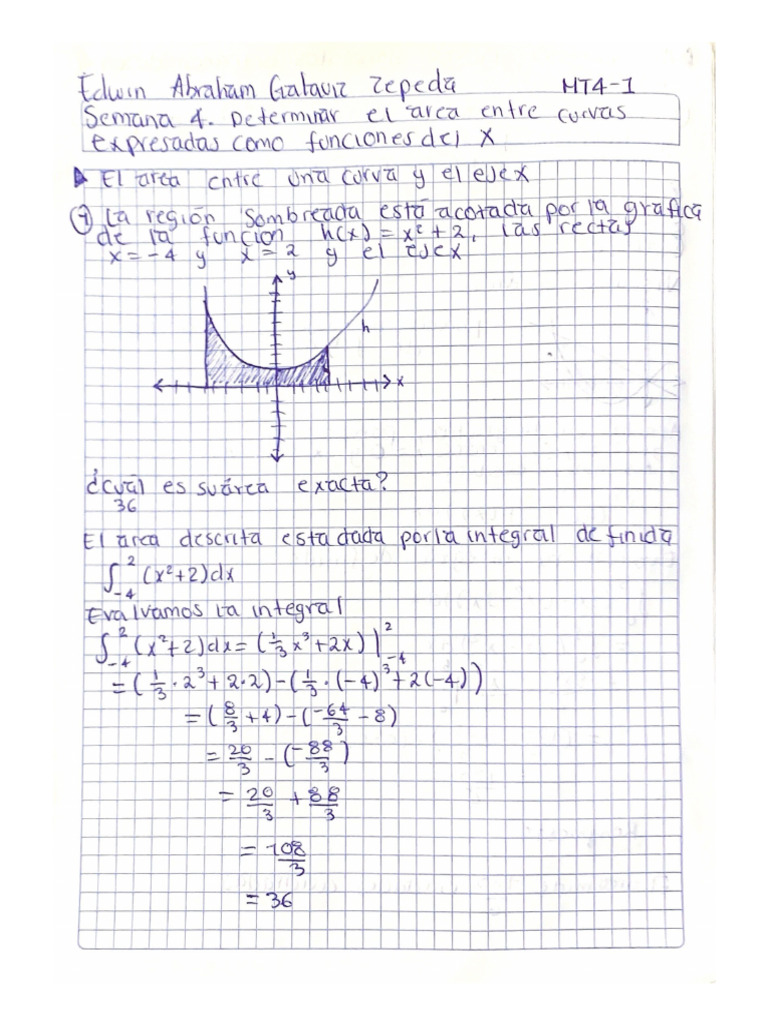 Edwin Abraham Galaviz Zepeda MT4-1
Semana 4. Determinar el area entre curvas
expresadas como funciones del X
El area entre una curva y el eje x
① La región sombreada está acotada por la gráfica
de la función h(x) = x² + 2, las rectas
x = -4 y x = 2 y el eje x
y
h
x
¿cuál es su área exacta?
36
El área descrita esta dada por la integral definida
∫₋₄² (x²+2)dx
Evaluamos la integral
∫₋₄² (x²+2)dx = (1/3 x³+2x)|₋₄²
= (1/3 · 2³ + 2·2) - (1/3 · (-4)³ + 2(-4))
= (8/3 + 4) - (-64/3 - 8)
= 20/3 - (-88/3)
= 20/3 + 88/3
= 108/3
= 36